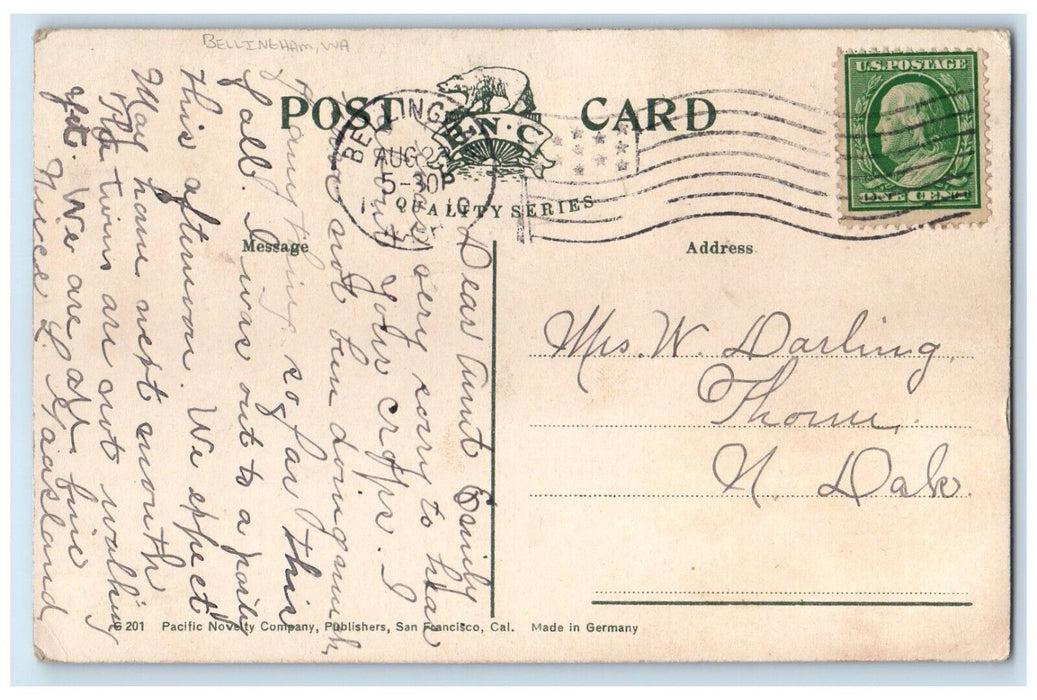 BELLINGHAM, WA
POST CARD
P.N.C.
QUALITY SERIES
BELLING
AUG 2
5-30P
U.S. POSTAGE
ONE CENT
Message
Address
Dear Aunt Emily
very sorry to hear
about your crops. I
have not been doing much
anything so far this
fall. I was out to a party
this afternoon. We expect
May home next month
The twins are not walking
yet. We are all fine
Niece L. Haasland
Mrs. W. Darling,
Thorne,
N. Dak.
G 201 Pacific Novelty Company, Publishers, San Francisco, Cal. Made in Germany